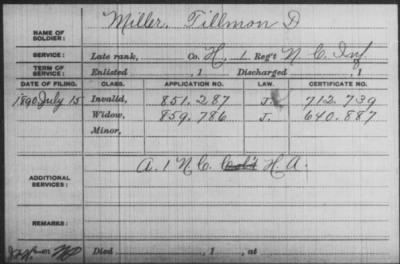 NAME OF SOLDIER: Miller, Tillmon D
SERVICE: Late rank, Co. H, 1 Reg't N. C. Inf
TERM OF SERVICE: Enlisted , 1 Discharged , 1
DATE OF FILING. CLASS. APPLICATION NO. LAW. CERTIFICATE NO.
1890 July 15 Invalid, 851.287 J. 712.739
Widow, 859.786 J. 640.887
Minor,
ADDITIONAL SERVICES: A. 1 N. C. Col'd H. A.
REMARKS:
Died , 1 , at